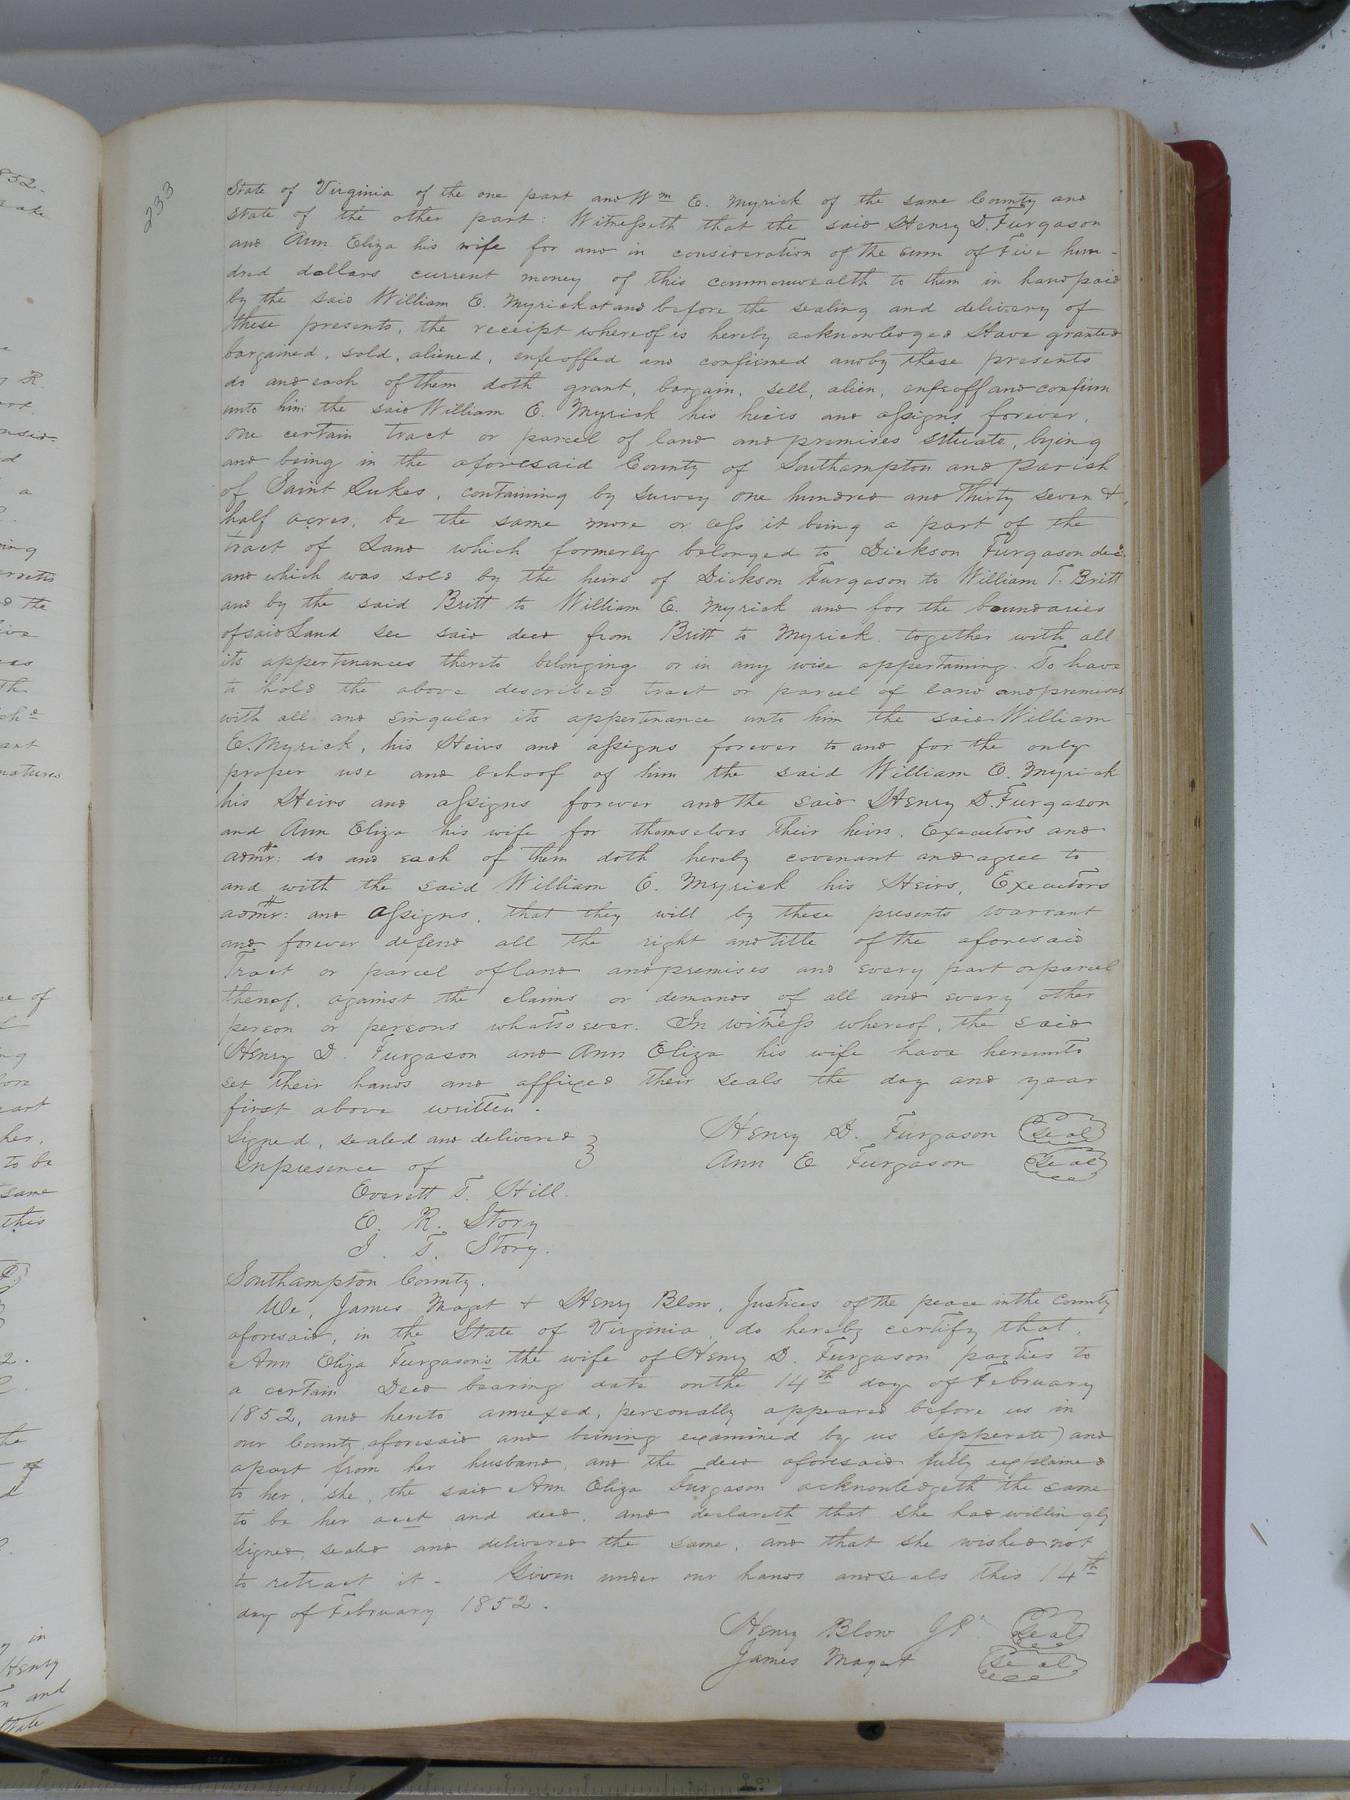 233
State of Virginia of the one part and Wm E. Myrick of the same County and
State of the other part: Witnesseth that the said Henry D. Furgason
and Ann Eliza his wife for and in consideration of the sum of Five hun-
dred dollars current money of this commonwealth to them in hand paid
by the said William E. Myrick at and before the sealing and delivery of
these presents, the receipt whereof is hereby acknowledged Have granted
bargained, sold, aliened, enfeoffed and confirmed and by these presents
do and each of them doth grant, bargain, sell, alien, enfeoff and confirm
unto him the said William E. Myrick his heirs and assigns forever,
one certain tract or parcel of land and premises situate, lying
and being in the aforesaid County of Southampton and parish
of Saint Lukes, containing by survey one hundred and thirty seven &
half acres, be the same more or less it being a part of the
tract of Land which formerly belonged to Dickson Furgason decd
and which was sold by the heirs of Dickson Furgason to William T. Britt
and by the said Britt to William E. Myrick and for the boundaries
of said Land see said deed from Britt to Myrick. together with all
its appertinances thereto belonging or in any wise appertaining. To have
to hold the above described tract or parcel of land and premises
with all and singular its appertinance unto him the said William
E. Myrick, his Heirs and assigns forever to and for the only
proper use and behoof of him the said William E. Myrick
his Heirs and assigns forever and the said Henry D. Furgason
and Ann Eliza his wife for themselves their heirs, Executors and
admrs: do and each of them doth hereby covenant and agree to
and with the said William E. Myrick his Heirs, Executors
admrs: and assigns, that they will by these presents warrant
and forever defend all the right and title of the aforesaid
Tract or parcel of land and premises and every part or parcel
thereof, against the claims or demands of all and every other
person or persons whatsoever. In witness whereof, the said
Henry D. Furgason and Ann Eliza his wife have hereunto
set their hands and affixed their seals the day and year
first above written.
Signed, sealed and delivered } Henry D. Furgason Seal
in presence of Ann E Furgason Seal
Everett T. Hill.
E. R. Story
J. T. Story.
Southampton County.
We, James Maget & Henry Blow, Justices of the peace in the County
aforesaid, in the State of Virginia, do hereby certify that,
Ann Eliza Furgason's the wife of Henry D. Furgason parties to
a certain Deed bearing date on the 14th day of February
1852, and hereto annexed, personally appeared before us in
our County aforesaid and beining examined by us sepperate) and
apart from her husband, and the deed aforesaid fully explained
to her, she, the said Ann Eliza Furgason acknowledgeth the same
to be her acct and deed, and declareth that she had willingly
signed, sealed and delivered the same, and that she wished not
to retract it - Given under our hands and seals this 14th
day of February 1852.
Henry Blow JP. Seal
James Maget Seal